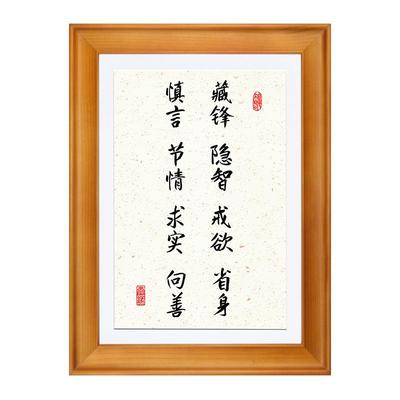 藏锋 隐智 戒欲 省身
慎言 节情 求实 向善